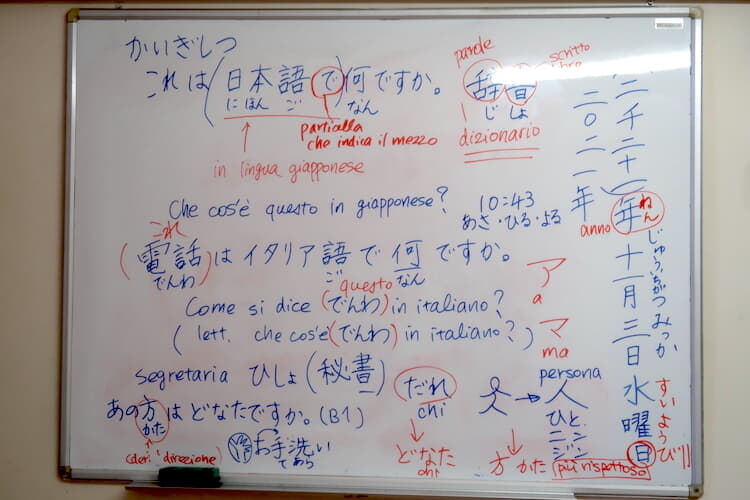 かいぎしつ
これは(日本語で)何ですか。
にほん ご なん
particella
che indica il mezzo
in lingua giapponese
parole
scritto
辞書
じしょ
dizionario
Che cos'è questo in giapponese?
10:43
あさ・ひる・よる
これ
(電話)はイタリア語で何ですか。
でんわ ご なん
questo
Come si dice (でんわ) in italiano?
(lett. che cos'è (でんわ) in italiano?)
ア
a
マ
ma
segretaria ひしょ (秘書)
あの方はどなたですか。(B1)
かた
direzione)
お手洗い
てあら
だれ
chi
どなた
chi
persona
人
ひと
ニン
ジン
方 かた più rispettoso
二〇二一年
anno
二千二十一年
ねん
十一月三日
じゅういちがつ みっか
水曜日
すいようび